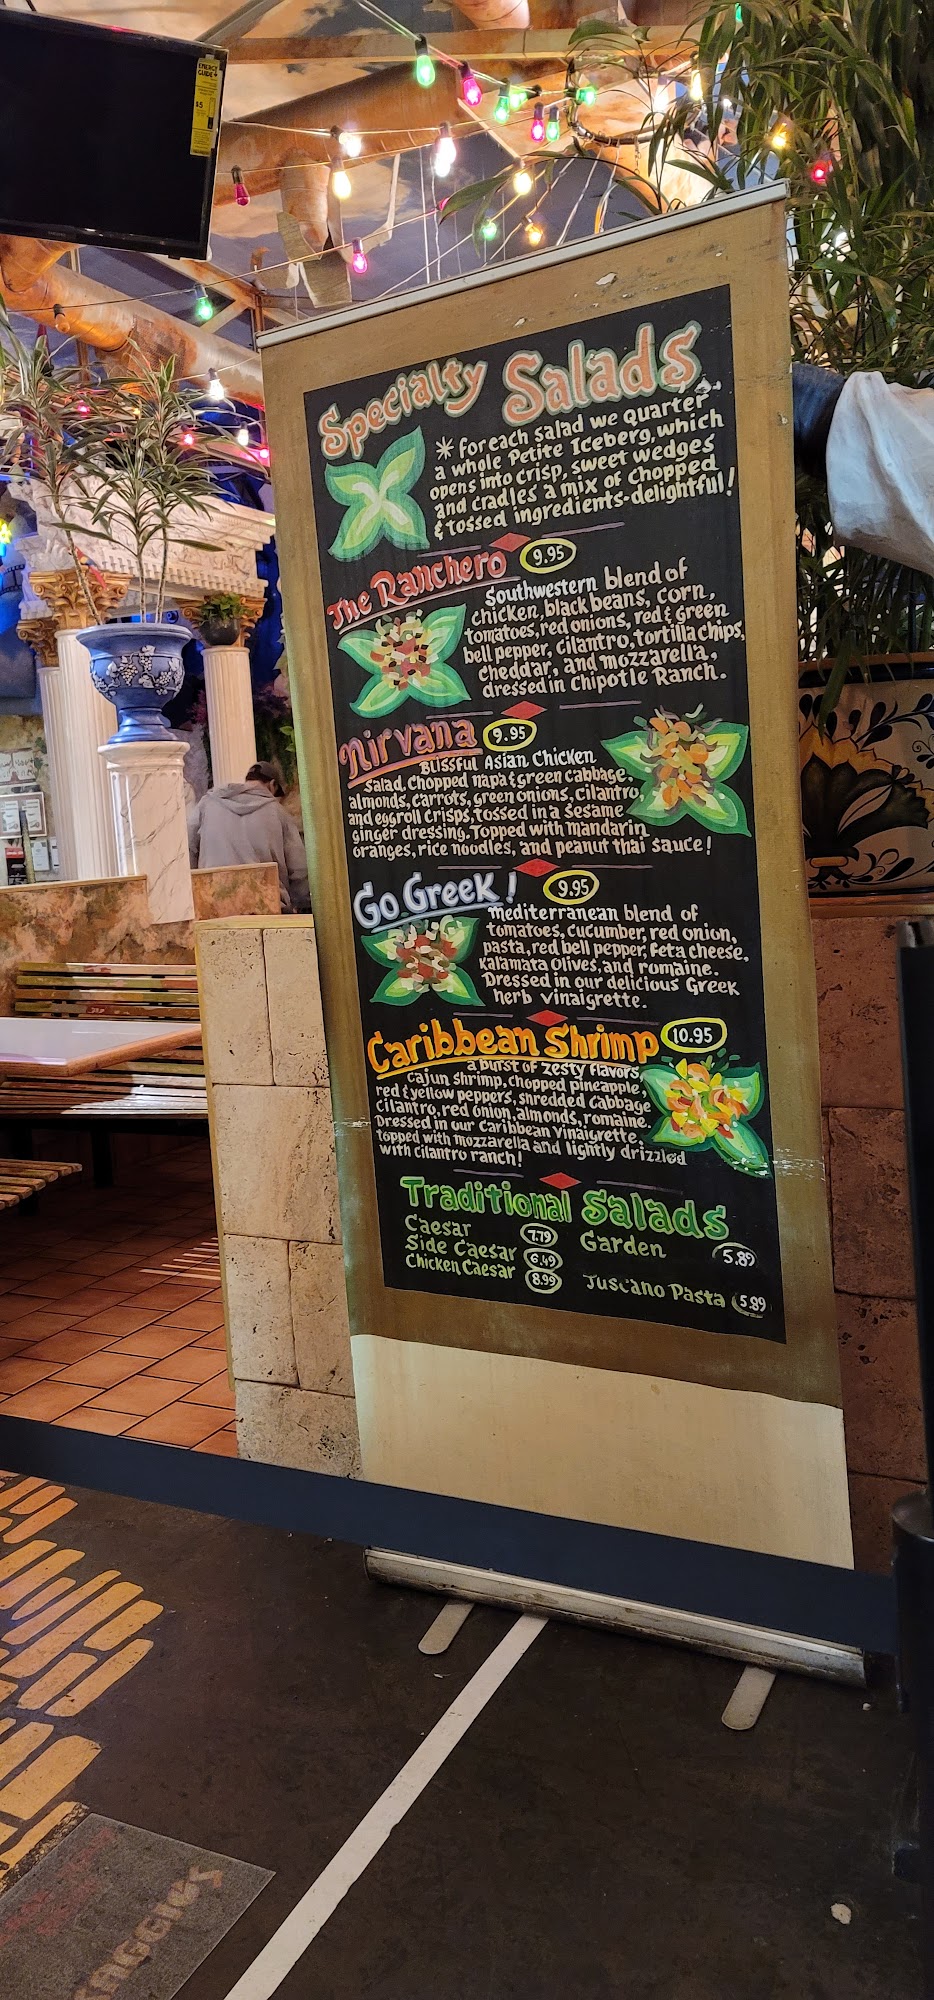 ENERGY
GUIDE
$5
SAMSUNG
Specialty Salads
* For each salad we quarter
a whole Petite Iceberg, which
opens into crisp, sweet wedges
and cradles a mix of chopped
& tossed ingredients-delightful!
The Ranchero 9.95
Southwestern blend of
chicken, black beans, corn,
tomatoes, red onions, red & green
bell pepper, cilantro, tortilla chips,
cheddar, and mozzarella.
dressed in Chipotle Ranch.
Nirvana 9.95
Blissful Asian Chicken
Salad. Chopped napa & green cabbage,
almonds, carrots, green onions, cilantro,
and eggroll crisps, tossed in a sesame
ginger dressing. Topped with mandarin
oranges, rice noodles, and peanut thai sauce!
Go Greek! 9.95
Mediterranean blend of
tomatoes, cucumber, red onion,
pasta, red bell pepper, feta cheese,
Kalamata Olives, and romaine.
Dressed in our delicious Greek
herb vinaigrette.
Caribbean Shrimp 10.95
a burst of zesty flavors,
Cajun shrimp, chopped pineapple,
red & yellow peppers, shredded cabbage
Cilantro, red onion, almonds, romaine.
Dressed in our Caribbean Vinaigrette.
topped with mozzarella and lightly drizzled
with cilantro ranch!
Traditional Salads
Caesar 7.79
Side Caesar 6.49
Chicken Caesar 8.99
Garden 5.89
Tuscano Pasta 5.89